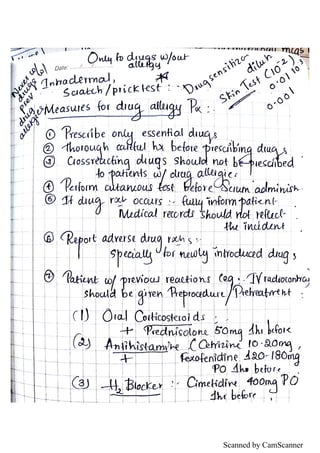 Only to drugs w/out allergy
Date:
Never w/ drugs w/ prev drug allergies
Intradermal,
Scratch/pricktest :-
Drug sensitization
Skin Test (10-2)
0.01
0.001
Measures for drug allergy Rx :-
① Prescribe only essential drugs
② Thorough careful hx before prescribing drugs
③ Crossreacting drugs should not be prescribed
to patients w/ drug allergies
④ Perform cutaneous test before serum adminish
⑤ If drug rxn occurs :- fully inform patient.
Medical records should not reflect
the incident
⑥ Report adverse drug rxns :-
specially for newly introduced drugs
⑦ Patient w/ previous reactions (eg:- IV radiocontras
should be given Preprocedure/Pretreatment :
(1) Oral Corticosteroids :
+ Prednisolone 50mg 1hs before
(2) Antihistamine (Cetrizine 10-20mg,
+ Fexofenidine 120-180mg
PO 1hs before
(3) H2 Blocker :- Cimetidine 400mg PO
1hr before
Scanned by CamScanner